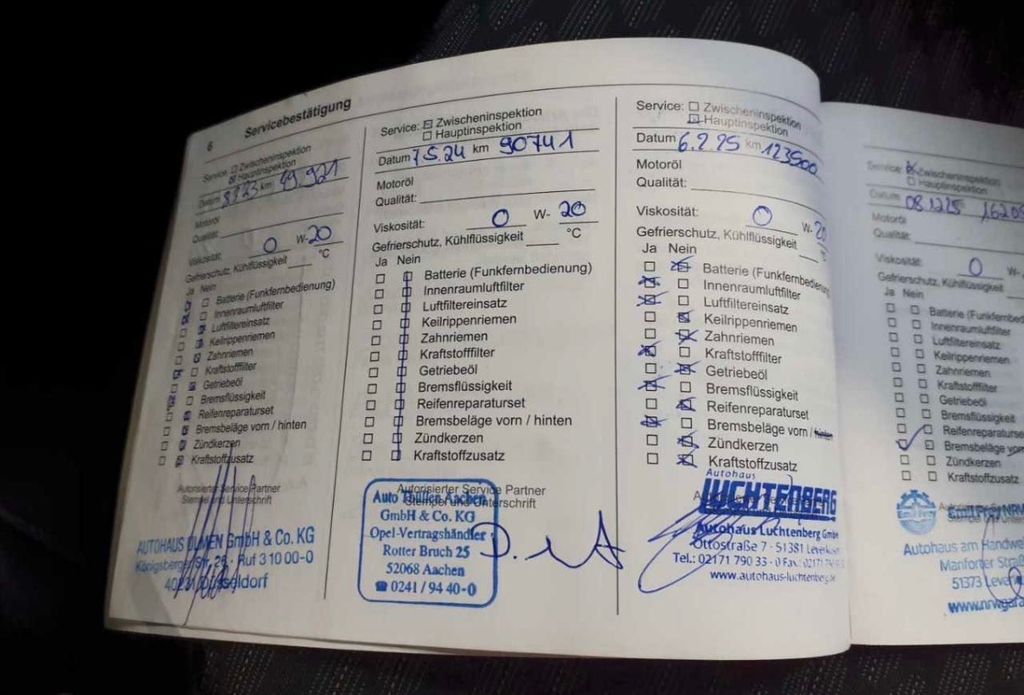 6 Servicebestätigung
Service: Zwischeninspektion
Hauptinspektion
Datum km 49.921
Motoröl
Qualität:
Viskosität: 0 W-20
Gefrierschutz, Kühlflüssigkeit °C
Ja Nein
Batterie (Funkfernbedienung)
Innenraumluftfilter
Luftfiltereinsatz
Keilrippenriemen
Zahnriemen
Kraftstofffilter
Getriebeöl
Bremsflüssigkeit
Reifenreparaturset
Bremsbeläge vorn / hinten
Zündkerzen
Kraftstoffzusatz
Autorisierter Service Partner
Stempel und Unterschrift
AUTOHAUS ULMEN GmbH & Co. KG
Königsberger Str. Ruf 3 10 00-0
Düsseldorf
Service: Zwischeninspektion
Hauptinspektion
Datum 7.5.24 km 90741
Motoröl
Qualität:
Viskosität: 0 W- 20
Gefrierschutz, Kühlflüssigkeit °C
Ja Nein
Batterie (Funkfernbedienung)
Innenraumluftfilter
Luftfiltereinsatz
Keilrippenriemen
Zahnriemen
Kraftstofffilter
Getriebeöl
Bremsflüssigkeit
Reifenreparaturset
Bremsbeläge vorn / hinten
Zündkerzen
Kraftstoffzusatz
Autorisierter Service Partner
Stempel und Unterschrift
Auto Thüllen Aachen
GmbH & Co. KG
Opel-Vertragshändler
Rotter Bruch 25
52068 Aachen
☎ 0241 / 94 40-0
Service: Zwischeninspektion
Hauptinspektion
Datum 6.2.25 km 123500
Motoröl
Qualität:
Viskosität: 0 W- 20
Gefrierschutz, Kühlflüssigkeit °C
Ja Nein
Batterie (Funkfernbedienung
Innenraumluftfilter
Luftfiltereinsatz
Keilrippenriemen
Zahnriemen
Kraftstofffilter
Getriebeöl
Bremsflüssigkeit
Reifenreparaturset
Bremsbeläge vorn / hinten
Zündkerzen
Kraftstoffzusatz
Autohaus
LUCHTENBERG
Autohaus Luchtenberg GmbH
Ottostraße 7 · 51381
Tel.: 02171 790 33 - 0
www.autohaus-luchtenberg.de
Service: Zwischeninspektion
Hauptinspektion
Datum 08.12.25
Motoröl
Qualität:
Viskosität: 0 W-
Gefrierschutz, Kühlflüssigke
Ja Nein
Batterie (Funkfernbed
Innenraumluftfilter
Luftfiltereinsatz
Keilrippenriemen
Zahnriemen
Kraftstofffilter
Getriebeöl
Bremsflüssigkeit
Reifenreparaturse
Bremsbeläge vo
Zündkerzen
Kraftstoffzusatz
Autohaus am Handwe
Manforter Straß
51373 Leve